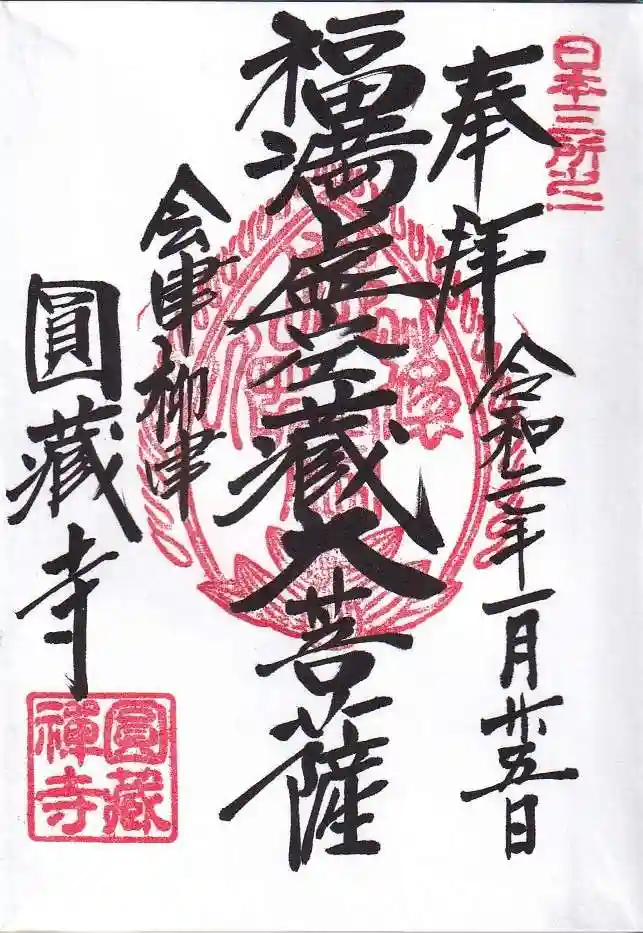 日本三所之一
奉拝
令和二年一月廿五日
福満虚空藏大菩薩
会津柳津
圓藏寺
圓藏禪寺